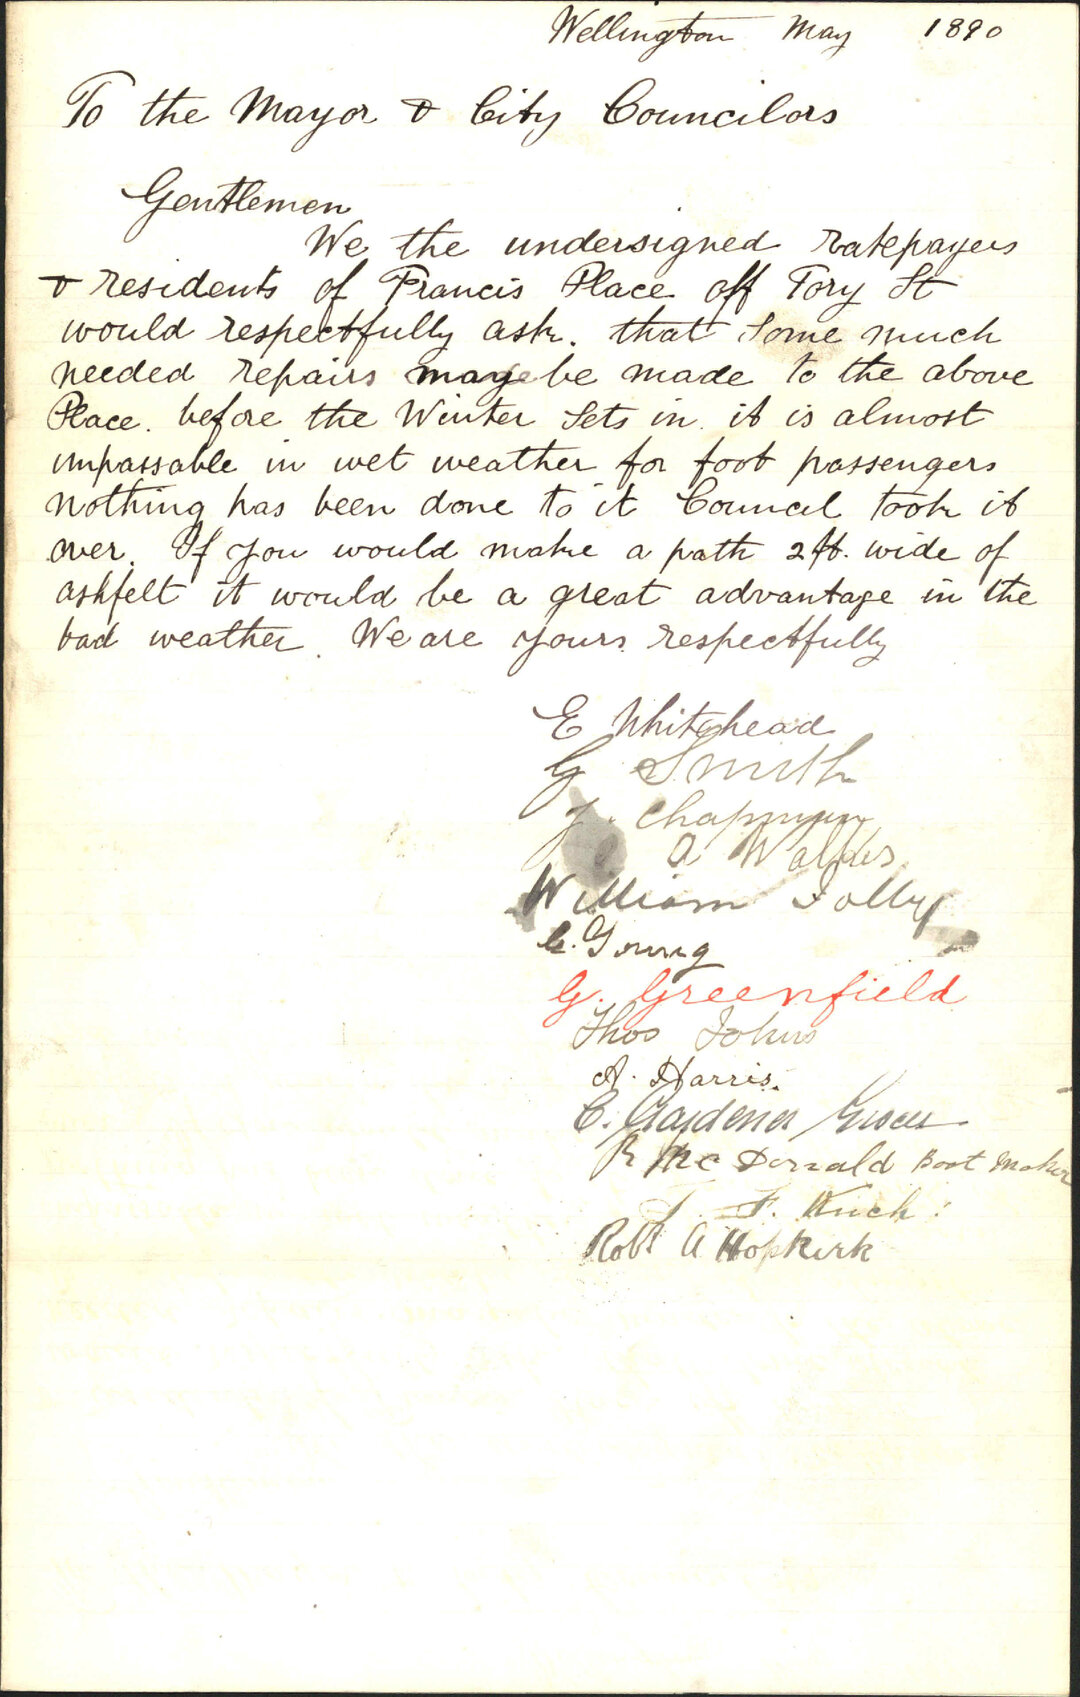 Wellington May 1890
To the Mayor & City Councilors
Gentlemen
We the undersigned ratepayers
& residents of Francis Place off Tory St
would respectfully ask. that some much
needed repairs may be made to the above
Place. before the Winter sets in. it is almost
impassable in wet weather for foot passengers
nothing has been done to it Council took it
over. If you would make a path 2 ft. wide of
ashfelt it would be a great advantage in the
bad weather. We are yours respectfully
E Whitehead
G Smith
J. Chapman
A Walters
William Jolly
G. Young
G. Greenfield
Thos Johns
A. Harris.
C. Gardener Grocer
R McDonald Boot Maker
F.
Robt A Hopkirk